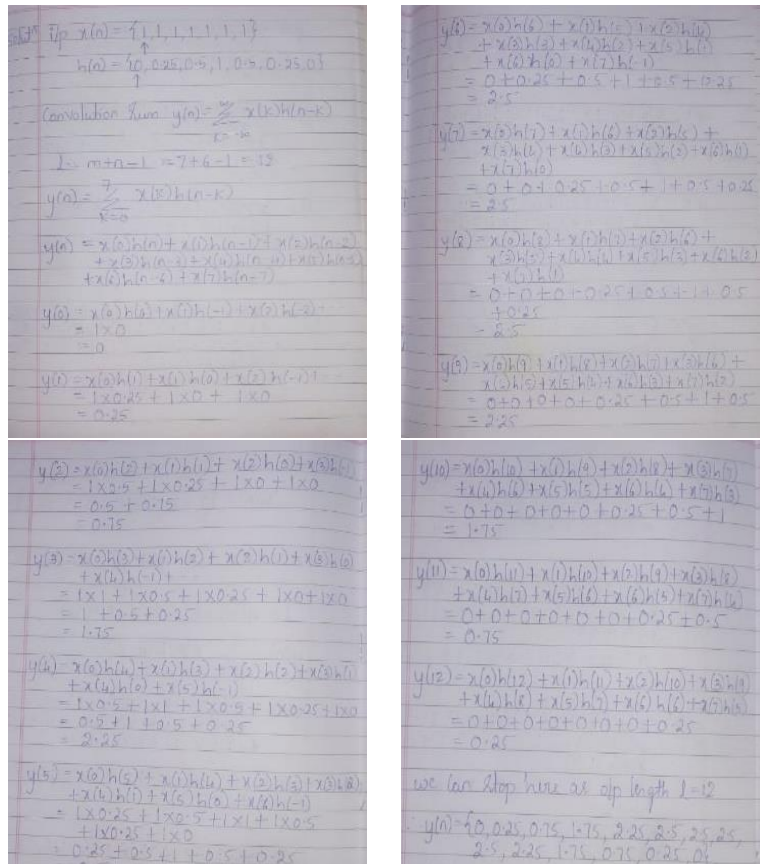 i/p x(n) = {1, 1, 1, 1, 1, 1, 1}
↑
h(n) = {0, 0.25, 0.5, 1, 0.5, 0.25, 0}
↑
Convolution Sum y(n) = Σ x(k)h(n-k)
k = -∞
L = m+n-1 = 7+6-1 = 12
7
y(n) = Σ x(k)h(n-k)
k=0
y(n) = x(0)h(n) + x(1)h(n-1) + x(2)h(n-2)
+ x(3)h(n-3) + x(4)h(n-4) + x(5)h(n-5)
+ x(6)h(n-6) + x(7)h(n-7)
y(0) = x(0)h(0) + x(1)h(-1) + x(2)h(-2)
= 1×0
= 0
y(1) = x(0)h(1) + x(1)h(0) + x(2)h(-1) +
= 1×0.25 + 1×0 + 1×0
= 0.25
y(2) = x(0)h(2) + x(1)h(1) + x(2)h(0) + x(3)h(-1)
= 1×0.5 + 1×0.25 + 1×0 + 1×0
= 0.5 + 0.25
= 0.75
y(3) = x(0)h(3) + x(1)h(2) + x(2)h(1) + x(3)h(0)
+ x(4)h(-1) +
= 1×1 + 1×0.5 + 1×0.25 + 1×0 + 1×0
= 1 + 0.5 + 0.25
= 1.75
y(4) = x(0)h(4) + x(1)h(3) + x(2)h(2) + x(3)h(1)
+ x(4)h(0) + x(5)h(-1)
= 1×0.5 + 1×1 + 1×0.5 + 1×0.25 + 1×0
= 0.5 + 1 + 0.5 + 0.25
= 2.25
y(5) = x(0)h(5) + x(1)h(4) + x(2)h(3) + x(3)h(2)
+ x(4)h(1) + x(5)h(0) + x(6)h(-1)
= 1×0.25 + 1×0.5 + 1×1 + 1×0.5
+ 1×0.25 + 1×0
= 0.25 + 0.5 + 1 + 0.5 + 0.25
y(6) = x(0)h(6) + x(1)h(5) + x(2)h(4)
+ x(3)h(3) + x(4)h(2) + x(5)h(1)
+ x(6)h(0) + x(7)h(-1)
= 0 + 0.25 + 0.5 + 1 + 0.5 + 0.25
= 2.5
y(7) = x(0)h(7) + x(1)h(6) + x(2)h(5) +
x(3)h(4) + x(4)h(3) + x(5)h(2) + x(6)h(1)
+ x(7)h(0)
= 0 + 0 + 0.25 + 0.5 + 1 + 0.5 + 0.25
= 2.5
y(8) = x(0)h(8) + x(1)h(7) + x(2)h(6) +
x(3)h(5) + x(4)h(4) + x(5)h(3) + x(6)h(2)
+ x(7)h(1)
= 0 + 0 + 0 + 0.25 + 0.5 + 1 + 0.5
+ 0.25
= 2.5
y(9) = x(0)h(9) + x(1)h(8) + x(2)h(7) + x(3)h(6) +
x(4)h(5) + x(5)h(4) + x(6)h(3) + x(7)h(2)
= 0 + 0 + 0 + 0 + 0.25 + 0.5 + 1 + 0.5
= 2.25
y(10) = x(0)h(10) + x(1)h(9) + x(2)h(8) + x(3)h(7)
+ x(4)h(6) + x(5)h(5) + x(6)h(4) + x(7)h(3)
= 0 + 0 + 0 + 0 + 0 + 0.25 + 0.5 + 1
= 1.75
y(11) = x(0)h(11) + x(1)h(10) + x(2)h(9) + x(3)h(8)
+ x(4)h(7) + x(5)h(6) + x(6)h(5) + x(7)h(4)
= 0 + 0 + 0 + 0 + 0 + 0 + 0.25 + 0.5
= 0.75
y(12) = x(0)h(12) + x(1)h(11) + x(2)h(10) + x(3)h(9)
+ x(4)h(8) + x(5)h(7) + x(6)h(6) + x(7)h(5)
= 0 + 0 + 0 + 0 + 0 + 0 + 0 + 0.25
= 0.25
we can stop here as o/p length L=12
∴ y(n) = {0, 0.25, 0.75, 1.75, 2.25, 2.5, 2.5, 2.5,
2.5, 2.25, 1.75, 0.75, 0.25, 0